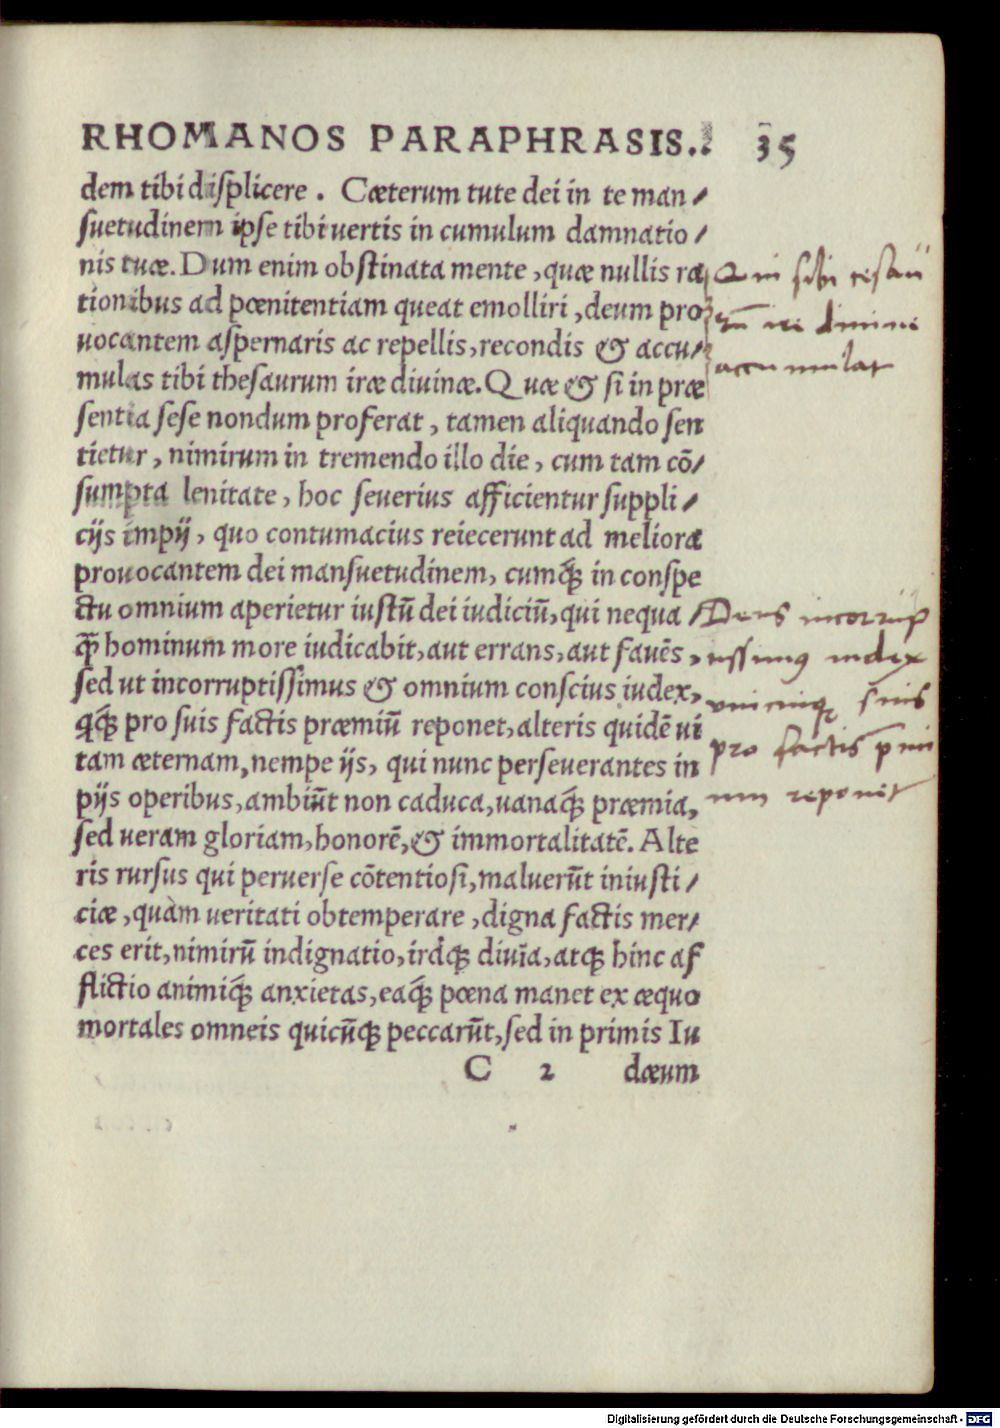 RHOMANOS PARAPHRASIS. 35
dem tibi displicere . Cæterum tute dei in te man/
suetudinem ipse tibi uertis in cumulum damnatio/
nis tuæ. Dum enim obstinata mente, quæ nullis ra
tionibus ad pœnitentiam queat emolliri, deum pro
uocantem aspernaris ac repellis, recondis & accu/
mulas tibi thesaurum iræ diuinæ. Quæ & si in præ
sentia sese nondum proferat, tamen aliquando sen
tietur, nimirum in tremendo illo die, cum tam cō/
sumpta lenitate, hoc seuerius afficientur suppli/
cijs impij, quo contumacius reiecerunt ad meliora
prouocantem dei mansuetudinem, cumq́; in conspe
ctu omnium aperietur iustū dei iudiciū, qui nequa/
q̄ hominum more iudicabit, aut errans, aut fauēs,
sed ut incorruptissimus & omnium conscius iudex,
q́q́; pro suis factis præmiū reponet, alteris quidē ui
tam æternam, nempe ijs, qui nunc perseuerantes in
pijs operibus, ambiūt non caduca, uanaq́; præmia,
sed ueram gloriam, honorē, & immortalitatē. Alte
ris rursus qui peruerse cōtentiosi, maluerūt iniusti/
ciæ, quàm ueritati obtemperare, digna factis mer/
ces erit, nimirū indignatio, iráq; diuīa, atq; hinc af
flictio animiq́; anxietas, eaq́; pœna manet ex æquo
mortales omneis quicūq; peccarūt, sed in primis Iu
C 2 dæum
Qui sibi
accumulat
Deus incorrup
tissimus iudex
unicuique suis
pro factis
um reponit
Digitalisierung gefördert durch die Deutsche Forschungsgemeinschaft - DFG